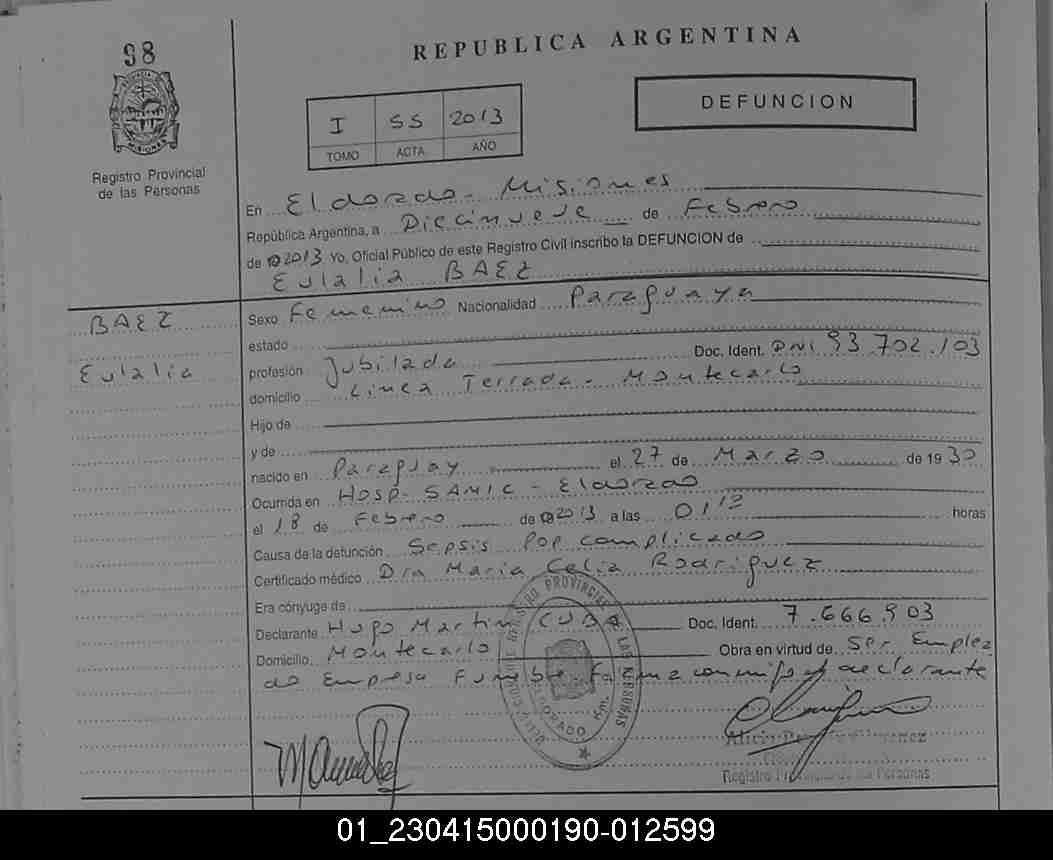 98
REPUBLICA ARGENTINA
DEFUNCION
I SS 2013
TOMO ACTA AÑO
Registro Provincial
de las Personas
En Eldorado - Misiones
República Argentina, a Diecinueve de Febrero
de 2013 Yo, Oficial Público de este Registro Civil inscribo la DEFUNCION de
Eulalia BAEZ
BAEZ
Eulalia
Sexo Femenino Nacionalidad Paraguaya
estado
profesión Jubilada Doc. Ident. DNI 93.702.103
domicilio Linea Terrada - Montecarlo
Hijo de
y de
nacido en Paraguay el 27 de Marzo de 1930
Ocurrida en Hosp- SAMIC - Eldorado
el 18 de Febrero de 2013 a las 01 horas
Causa de la defunción Sepsis POP complicado
Certificado médico Dra Maria Celia Rodriguez
Era cónyuge de
Declarante Hugo Martin CUBA Doc. Ident. 7.666.903
Domicilio Montecarlo Obra en virtud de Ser Emplea
do Empresa Funebre Firma conmigo el declarante
ELDORADO
Registro Provincial de las Personas
01_230415000190-012599